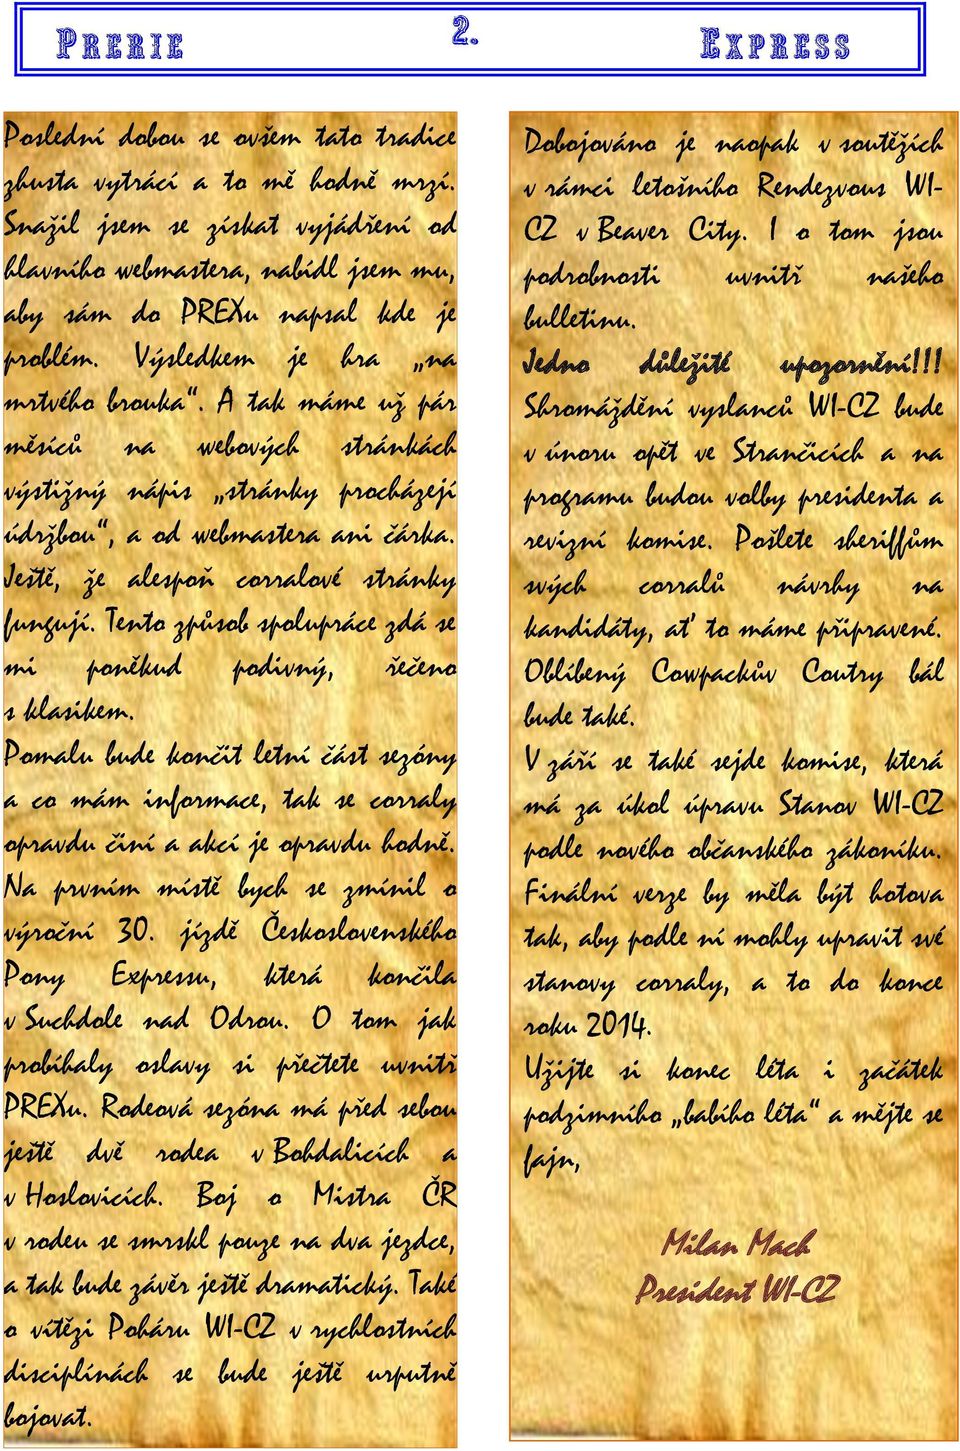 PRERIE 2. EXPRESS
Poslední dobou se ovšem tato tradice
zhusta vytrácí a to mě hodně mrzí.
Snažil jsem se získat vyjádření od
hlavního webmastera, nabídl jsem mu,
aby sám do PREXu napsal kde je
problém. Výsledkem je hra „na
mrtvého brouka“. A tak máme už pár
měsíců na webových stránkách
výstižný nápis „stránky procházejí
údržbou“, a od webmastera ani čárka.
Ještě, že alespoň corralové stránky
fungují. Tento způsob spolupráce zdá se
mi poněkud podivný, řečeno
s klasikem.
Pomalu bude končit letní část sezóny
a co mám informace, tak se corraly
opravdu činí a akcí je opravdu hodně.
Na prvním místě bych se zmínil o
výroční 30. jízdě Československého
Pony Expressu, která končila
v Suchdole nad Odrou. O tom jak
probíhaly oslavy si přečtete uvnitř
PREXu. Rodeová sezóna má před sebou
ještě dvě rodea v Bohdalicích a
v Hoslovicích. Boj o Mistra ČR
v rodeu se smrskl pouze na dva jezdce,
a tak bude závěr ještě dramatický. Také
o vítězi Poháru WI-CZ v rychlostních
disciplínách se bude ještě urputně
bojovat.
Dobojováno je naopak v soutěžích
v rámci letošního Rendezvous WI-
CZ v Beaver City. I o tom jsou
podrobnosti uvnitř našeho
bulletinu.
Jedno důležité upozornění!!!
Shromáždění vyslanců WI-CZ bude
v únoru opět ve Strančicích a na
programu budou volby presidenta a
revizní komise. Pošlete sheriffům
svých corralů návrhy na
kandidáty, ať to máme připravené.
Oblíbený Cowpackův Coutry bál
bude také.
V září se také sejde komise, která
má za úkol úpravu Stanov WI-CZ
podle nového občanského zákoníku.
Finální verze by měla být hotova
tak, aby podle ní mohly upravit své
stanovy corraly, a to do konce
roku 2014.
Užijte si konec léta i začátek
podzimního „babího léta“ a mějte se
fajn,
Milan Mach
President WI-CZ